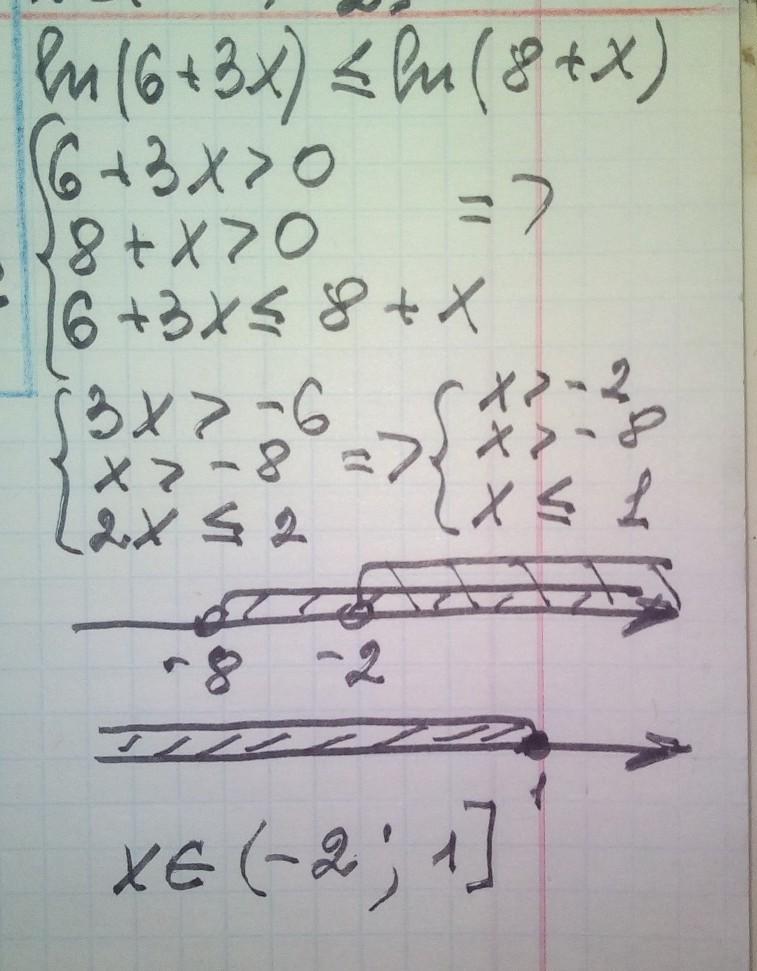 ln(6+3x) ≤ ln(8+x)
{6+3x>0
8+x>0 =>
6+3x≤8+x
{3x>-6 => {x>-2
x>-8 x>-8
2x≤2 x≤1
-8 -2
1
x∈(-2; 1]